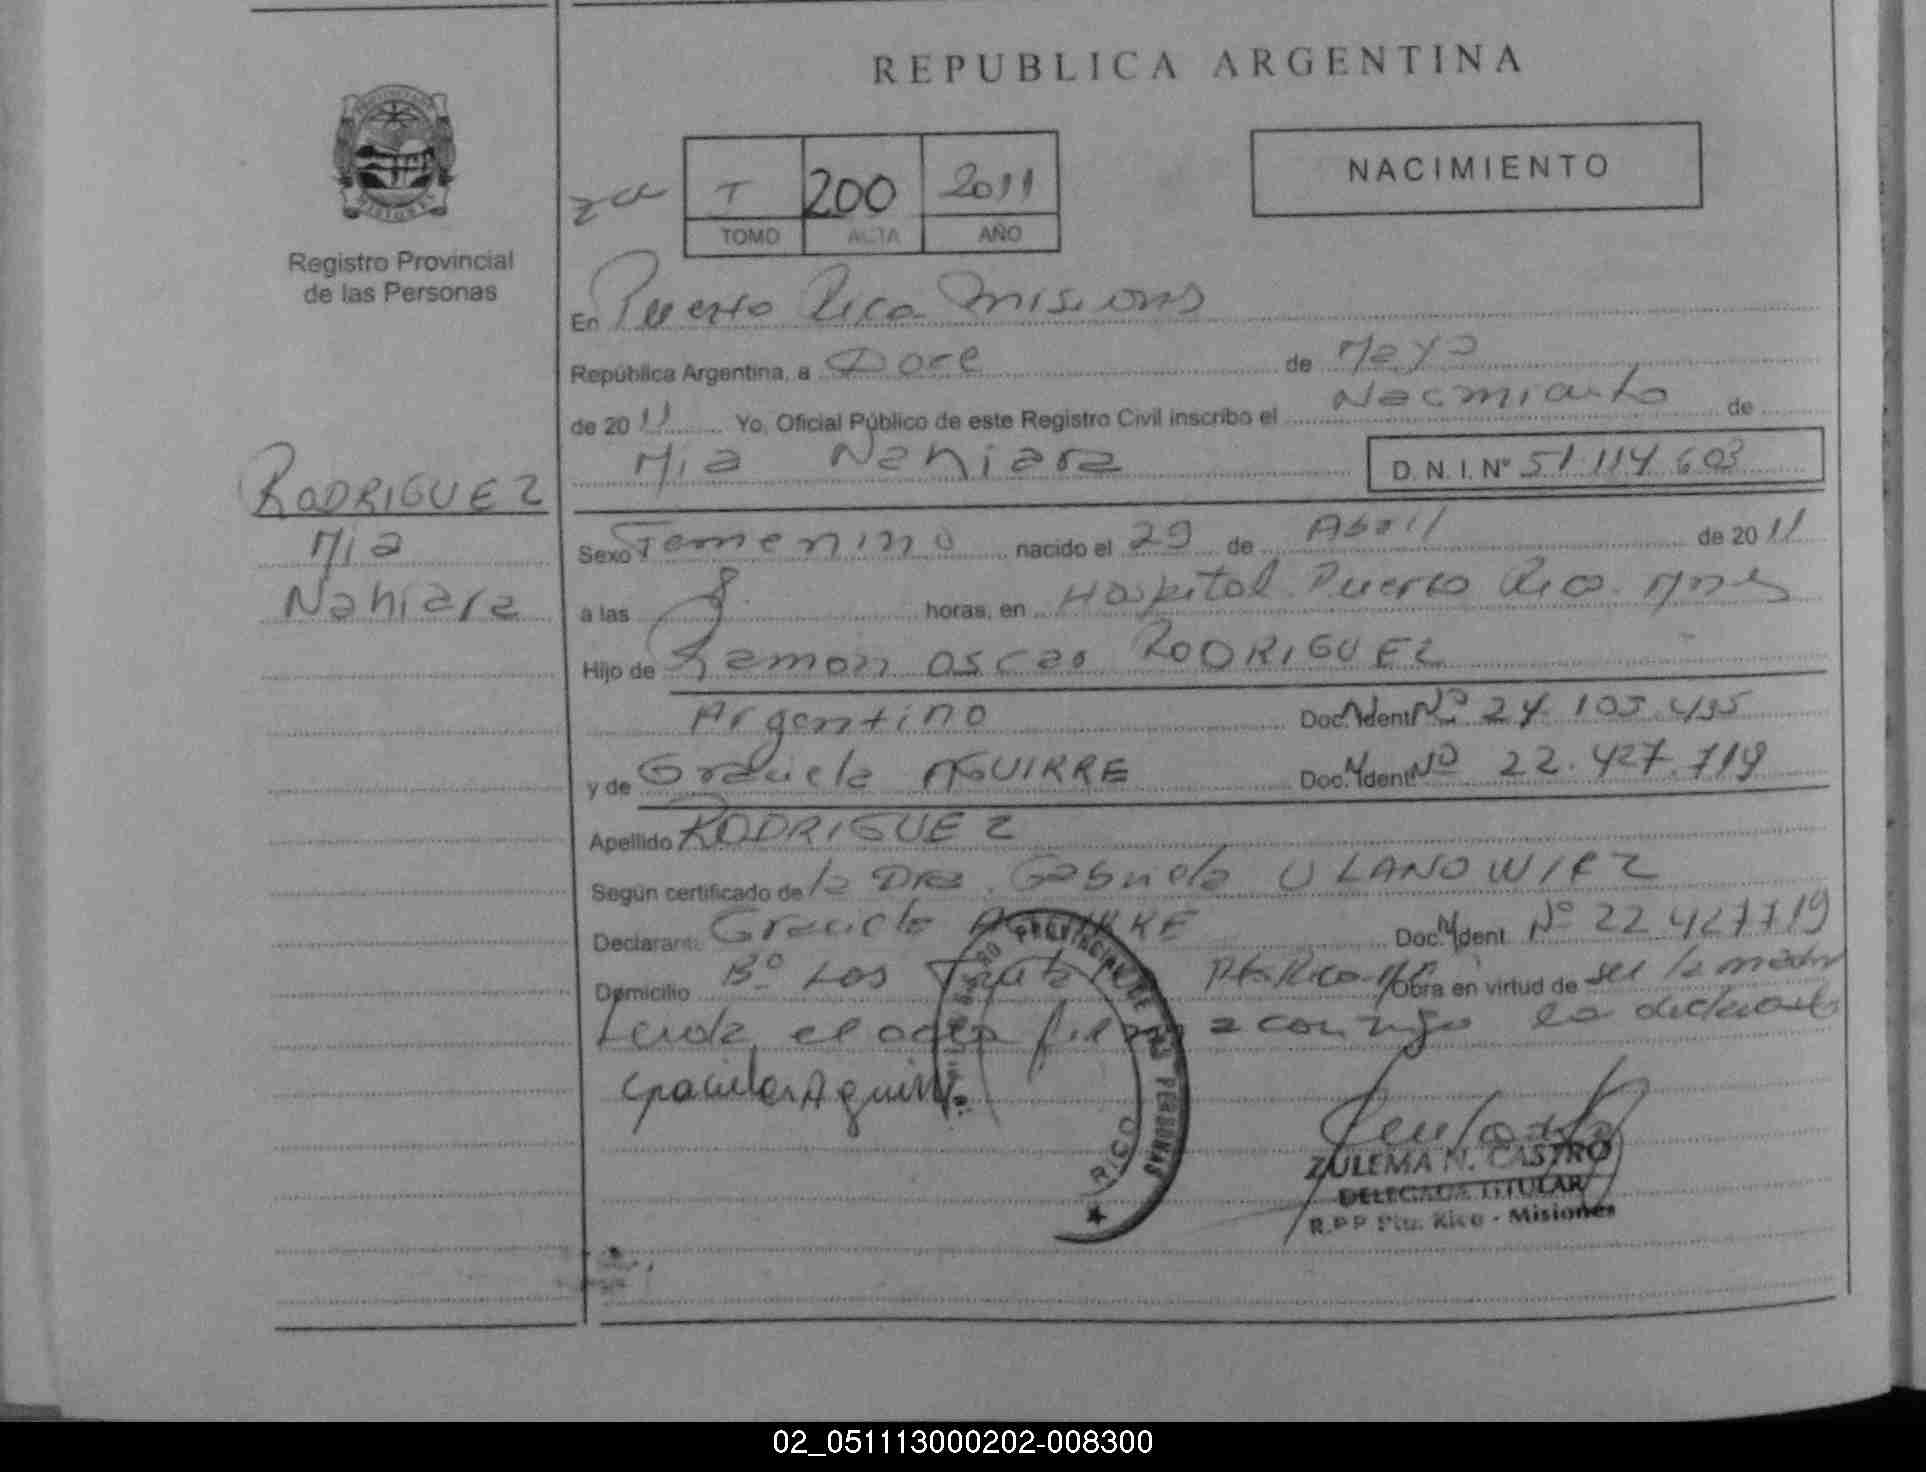 REPUBLICA ARGENTINA
PROVINCIA DE
MISIONES
Registro Provincial
de las Personas
T 200 2011
TOMO ACTA AÑO
NACIMIENTO
En Puerto Rico Misiones
República Argentina, a Doce de Mayo
de 2011 Yo, Oficial Público de este Registro Civil inscribo el Nacimiento de
Mia Nahiara D. N. I. Nº 51.114.603
RODRIGUEZ
Mia
Nahiara
Sexo Femenino nacido el 29 de Abril de 2011
a las 8. horas, en Hospital Puerto Rico. Mnes
Hijo de Ramon Oscar RODRIGUEZ
Argentino Doc. Ident. Nº 24.105.435
y de Graciela AGUIRRE Doc. Ident. Nº 22.427.719
Apellido RODRIGUEZ
Según certificado de la Dra. Gabriela ULANOWIEZ
Declarante Graciela AGUIRRE Doc. Ident. Nº 22.427.719
Domicilio Bº Los Pto Rico Obra en virtud de ser la madre
Leida el acta firma conmigo la declarante
Graciela Aguirre
REGISTRO PROVINCIAL DE LAS PERSONAS
RICO
ZULEMA N. CASTRO
DELEGADA TITULAR
R.P.P Pto. Rico - Misiones
02_051113000202-008300